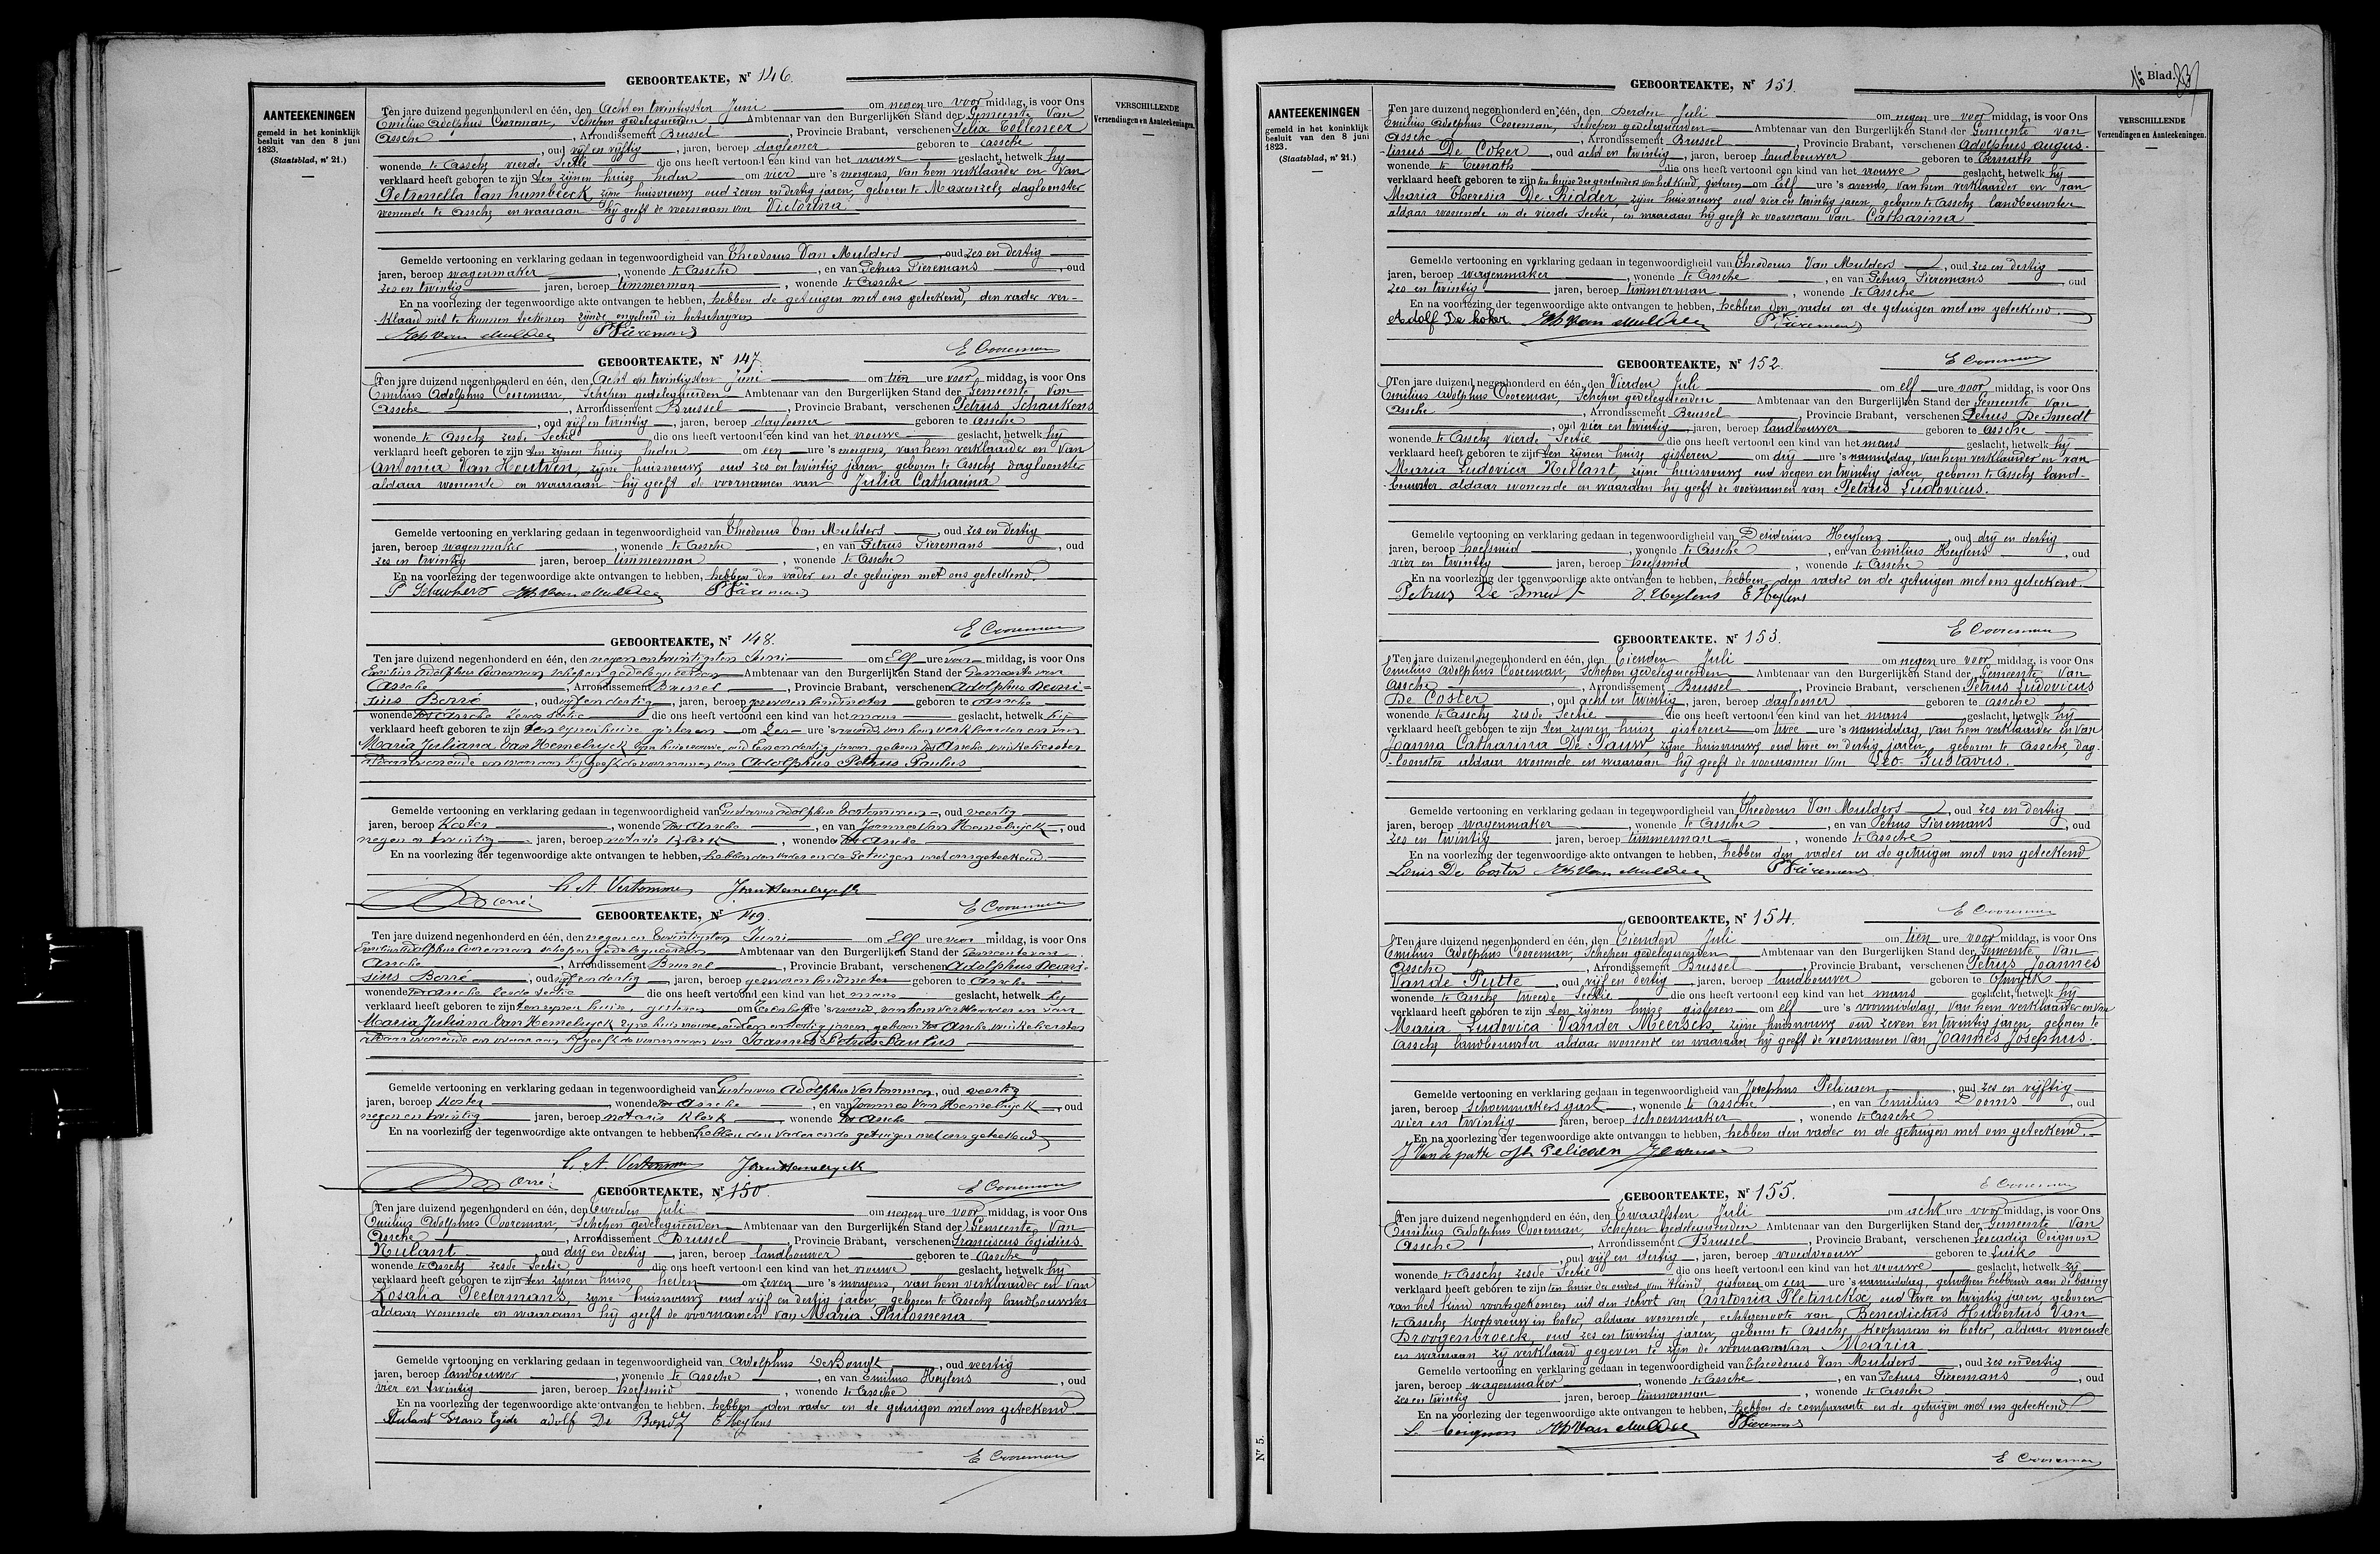 GEBOORTEAKTE, Nr 146.
AANTEEKENINGEN
gemeld in het koninklijk
besluit van den 8 juni
1823.
(Staatsblad, nr 21.)
VERSCHILLENDE
Verzendingen en Aanteekeningen.
Ten jare duizend negenhonderd en één, den Acht en twintigsten Juni om negen ure voor middag, is voor Ons
Emilius Adolphus Cooreman, Schepen gedelegueerden Ambtenaar van den Burgerlijken Stand der Gemeente Van
Assche, Arrondissement Brussel, Provincie Brabant, verschenen Felix Tolleneer
, oud vijf en vijftig, jaren, beroep dagloner geboren te Assche
wonende te Assche, vierde Sectie die ons heeft vertoond een kind van het vrouwe geslacht, hetwelk hij
verklaard heeft geboren te zijn ten zijnen huize heden om vier ure 's morgens, van hem verklaarder en van
Petronella Van humbeeck, zijne huisvrouw, oud zeven en dertig jaren, geboren te Maxenzele, dagloonster
wonende te Assche, en waaraan hij geeft de voornaam van Victorina.
Gemelde vertooning en verklaring gedaan in tegenwoordigheid van Theodorus Van Mulders, oud zes en dertig
jaren, beroep wagenmaker, wonende te Assche, en van Petrus Tieremans, oud
zes en twintig jaren, beroep timmerman, wonende te Assche
En na voorlezing der tegenwoordige akte ontvangen te hebben, hebben de getuigen met ons geteekend, den vader ver-
klaard niet te kunnen teekenen zijnde ongeleerd in het schrijven
Th Van Mulders P Tieremans
E Cooreman
GEBOORTEAKTE, Nr 147.
Ten jare duizend negenhonderd en één, den Acht en twintigsten Juni om tien ure voor middag, is voor Ons
Emilius Adolphus Cooreman, Schepen gedelegueerden Ambtenaar van den Burgerlijken Stand der Gemeente Van
Assche, Arrondissement Brussel, Provincie Brabant, verschenen Petrus Schaukens
, oud vijf en twintig, jaren, beroep dagloner geboren te Assche
wonende te Assche, zesde Sectie die ons heeft vertoond een kind van het vrouwe geslacht, hetwelk hij
verklaard heeft geboren te zijn ten zijnen huize heden om een ure 's morgens, van hem verklaarder en Van
Antonia Van Houtven, zijne huisvrouw, oud zes en twintig jaren, geboren te Assche, dagloonster
aldaar wonende en waaraan hij geeft de voornamen van Julia Catharina
Gemelde vertooning en verklaring gedaan in tegenwoordigheid van Theodorus Van Mulders, oud zes en dertig
jaren, beroep wagenmaker, wonende te Assche, en van Petrus Tieremans, oud
zes en twintig jaren, beroep timmerman, wonende te Assche
En na voorlezing der tegenwoordige akte ontvangen te hebben, hebben den vader en de getuigen met ons geteekend.
P Th Van Mulders P Tieremans
E Cooreman
GEBOORTEAKTE, Nr 148.
Ten jare duizend negenhonderd en één, den negen en twintigsten Juni om Elf ure voor middag, is voor Ons
Emilius Adolphus Cooreman schepen gedelegueerden Ambtenaar van den Burgerlijken Stand der Gemeente van
Assche, Arrondissement Brussel, Provincie Brabant, verschenen Adolphus Deoni-
sius Borré, oud vijf en dertig, jaren, beroep gezworen landmeter geboren te Assche
wonende tot Assche Zesde sectie die ons heeft vertoond een kind van het mans geslacht, hetwelk hij
verklaard heeft geboren te zijn ten zijnen huize gisteren om Zes ure 's avonds van hem verklaarder en van
Maria Juliana Van Hemelryck zijne huisvrouwe, oud Een en dertig jaren, geboren tot Assche winkelierster
aldaar wonende en waaraan hij geeft de voornamen van Adolphus Petrus Paulus
Gemelde vertooning en verklaring gedaan in tegenwoordigheid van Gustavus Adolphus Vertommen, oud veertig
jaren, beroep Koster, wonende tot Assche, en van Joannes Van Hemelryck, oud
negen en twintig jaren, beroep notaris Klerk, wonende tot Assche
En na voorlezing der tegenwoordige akte ontvangen te hebben, hebben den vader en de Getuigen met ons geteekend.
Borré G. A. Vertommen J van Hemelryck
E Cooreman
GEBOORTEAKTE, Nr 149.
Ten jare duizend negenhonderd en één, den negen en twintigsten Juni om Elf ure voor middag, is voor Ons
Emilius Adolphus Cooreman schepen gedelegueerden Ambtenaar van den Burgerlijken Stand der Gemeente van
Assche, Arrondissement Brussel, Provincie Brabant, verschenen Adolphus Deoni-
sius Borré, oud vijf en dertig, jaren, beroep gezworen landmeter geboren te Assche
wonende tot Assche Zesde sectie die ons heeft vertoond een kind van het mans geslacht, hetwelk hij
verklaard heeft geboren te zijn ten zijnen huize, gisteren om Zes en half ure 's avonds, van hem verklaarder en van
Maria Juliana Van Hemelryck zijne huisvrouwe, oud Een en dertig jaren, geboren tot Assche winkelierster
aldaar wonende en waaraan hij geeft de voornamen van Joannes Petrus Paulus
Gemelde vertooning en verklaring gedaan in tegenwoordigheid van Gustavus Adolphus Vertommen, oud veertig
jaren, beroep Koster, wonende tot Assche, en van Joannes Van Hemelryck, oud
negen en twintig jaren, beroep notaris Klerk, wonende tot Assche
En na voorlezing der tegenwoordige akte ontvangen te hebben, hebben den vader en de getuigen met ons geteekend
Borré G. A. Vertommen J van Hemelryck
E Cooreman
GEBOORTEAKTE, Nr 150.
Ten jare duizend negenhonderd en één, den Tweeden Juli om negen ure voor middag, is voor Ons
Emilius Adolphus Cooreman, Schepen gedelegueerden Ambtenaar van den Burgerlijken Stand der Gemeente Van
Assche, Arrondissement Brussel, Provincie Brabant, verschenen Franciscus Egidius
Nulant, oud drij en dertig, jaren, beroep landbouwer geboren te Assche
wonende te Assche, zesde Sectie die ons heeft vertoond een kind van het vrouwe geslacht, hetwelk hij
verklaard heeft geboren te zijn ten zijnen huize, heden om zeven ure 's morgens, van hem verklaarder en Van
Rosalia Peetermans, zijne huisvrouw, oud vijf en dertig jaren, geboren te Assche, landbouwster
aldaar wonende en waaraan hij geeft de voornamen van Maria Philomena
Gemelde vertooning en verklaring gedaan in tegenwoordigheid van Adolphus De Bondt, oud veertig
jaren, beroep landbouwer, wonende te Assche, en van Emilius Heylens, oud
vier en twintig jaren, beroep hoefsmid, wonende te Assche
En na voorlezing der tegenwoordige akte ontvangen te hebben, hebben den vader en de getuigen met ons geteekend.
Nulant Frans Egide adolf De Bondt E Heylens
E Cooreman
16e Blad.
GEBOORTEAKTE, Nr 151.
AANTEEKENINGEN
gemeld in het koninklijk
besluit van den 8 juni
1823.
(Staatsblad, nr 21.)
VERSCHILLENDE
Verzendingen en Aanteekeningen.
Ten jare duizend negenhonderd en één, den Derden Juli om negen ure voor middag, is voor Ons
Emilius Adolphus Cooreman, Schepen gedelegueerden Ambtenaar van den Burgerlijken Stand der Gemeente van
Assche, Arrondissement Brussel, Provincie Brabant, verschenen Adolphus augus-
tinus De Coker, oud acht en twintig, jaren, beroep landbouwer geboren te Ternath
wonende te Ternath die ons heeft vertoond een kind van het vrouwe geslacht, hetwelk hij
verklaard heeft geboren te zijn ten huize der grootouders van het kind, gisteren om Elf ure 's avonds, van hem verklaarder en van
Maria Theresia De Ridder, zijne huisvrouw, oud vier en twintig jaren, geboren te Assche, landbouwster
aldaar wonende in de vierde Sectie, en waaraan hij geeft de voornaam van Catharina
Gemelde vertooning en verklaring gedaan in tegenwoordigheid van Theodorus Van Mulders, oud zes en dertig
jaren, beroep wagenmaker, wonende te Assche, en van Petrus Tieremans, oud
zes en twintig jaren, beroep timmerman, wonende te Assche
En na voorlezing der tegenwoordige akte ontvangen te hebben, hebben den vader en de getuigen met ons geteekend.
Adolf De koker Th Van Mulders P Tieremans
E Cooreman
GEBOORTEAKTE, Nr 152.
Ten jare duizend negenhonderd en één, den Vierden Juli om elf ure voor middag, is voor Ons
Emilius Adolphus Cooreman, Schepen gedelegueerden Ambtenaar van den Burgerlijken Stand der Gemeente Van
Assche, Arrondissement Brussel, Provincie Brabant, verschenen Petrus De Smedt
, oud vier en twintig, jaren, beroep landbouwer geboren te Assche
wonende te Assche, vierde Sectie die ons heeft vertoond een kind van het mans geslacht, hetwelk hij
verklaard heeft geboren te zijn ten zijnen huize gisteren om drij ure 's namiddag, van hem verklaarder en van
Maria Ludovica Nulant, zijne huisvrouw, oud negen en twintig jaren, geboren te Assche, land-
bouwster aldaar wonende en waaraan hij geeft de voornamen van Petrus Ludovicus.
Gemelde vertooning en verklaring gedaan in tegenwoordigheid van Desiderius Heylens, oud drij en dertig
jaren, beroep hoefsmid, wonende te Assche, en van Emilius Heylens, oud
vier en twintig jaren, beroep hoefsmid, wonende te Assche
En na voorlezing der tegenwoordige akte ontvangen te hebben, hebben den vader en de getuigen met ons geteekend.
Petrus De Smedt D. Heylens E Heylens
E Cooreman
GEBOORTEAKTE, Nr 153.
Ten jare duizend negenhonderd en één, den Tienden Juli om negen ure voor middag, is voor Ons
Emilius Adolphus Cooreman, Schepen gedelegueerden Ambtenaar van den Burgerlijken Stand der Gemeente Van
Assche, Arrondissement Brussel, Provincie Brabant, verschenen Petrus Ludovicus
De Coster, oud acht en twintig, jaren, beroep dagloner geboren te Assche
wonende te Assche, zesde Sectie die ons heeft vertoond een kind van het mans geslacht, hetwelk hij
verklaard heeft geboren te zijn ten zijnen huize gisteren om twee ure 's namiddag, van hem verklaarder en Van
Joanna Catharina De Pauw, zijne huisvrouw, oud twee en dertig jaren, geboren te Assche, dag-
loonster aldaar wonende en waaraan hij geeft de voornamen van Leo Gustavus.
Gemelde vertooning en verklaring gedaan in tegenwoordigheid van Theodorus Van Mulders, oud zes en dertig
jaren, beroep wagenmaker, wonende te Assche, en van Petrus Tieremans, oud
zes en twintig jaren, beroep timmerman, wonende te Assche
En na voorlezing der tegenwoordige akte ontvangen te hebben, hebben den vader en de getuigen met ons geteekend
Louis De Coster Th Van Mulders P Tieremans
E Cooreman
GEBOORTEAKTE, Nr 154.
Ten jare duizend negenhonderd en één, den Tienden Juli om tien ure voor middag, is voor Ons
Emilius Adolphus Cooreman, Schepen gedelegueerden Ambtenaar van den Burgerlijken Stand der Gemeente Van
Assche, Arrondissement Brussel, Provincie Brabant, verschenen Petrus Joannes
Vande Putte, oud vijf en dertig, jaren, beroep landbouwer geboren te Opwijck
wonende te Assche, tweede Sectie die ons heeft vertoond een kind van het mans geslacht, hetwelk hij
verklaard heeft geboren te zijn ten zijnen huize gisteren om elf ure 's voormiddag, van hem verklaarder en Van
Maria Ludovica Vander Meersch, zijne huisvrouw, oud zeven en twintig jaren, geboren te
Assche, landbouwster aldaar wonende en waaraan hij geeft de voornamen van Joannes Josephus.
Gemelde vertooning en verklaring gedaan in tegenwoordigheid van Josephus Pelicaen, oud zes en vijftig
jaren, beroep schoenmakersgast, wonende te Assche, en van Emilius Dooms, oud
vier en twintig jaren, beroep schoenmaker, wonende te Assche
En na voorlezing der tegenwoordige akte ontvangen te hebben, hebben den vader en de getuigen met ons geteekend.
J Van de putte Jh Pelicaen
E Cooreman
GEBOORTEAKTE, Nr 155.
Ten jare duizend negenhonderd en één, den Twaalfsten Juli om acht ure voor middag, is voor Ons
Emilius Adolphus Cooreman, Schepen gedelegueerden Ambtenaar van den Burgerlijken Stand der Gemeente Van
Assche, Arrondissement Brussel, Provincie Brabant, verschenen Leocadia Coignon
, oud vijf en dertig, jaren, beroep vroedvrouw geboren te Luik
wonende te Assche, zesde Sectie die ons heeft vertoond een kind van het vrouwe geslacht, hetwelk zij
verklaard heeft geboren te zijn ten huize der ouders van 't kind, gisteren om een ure 's namiddag, geholpen hebbende aan de baring
van het kind voortgekomen uit den schoot van Antonia Pletinckx oud twee en twintig jaren, geboren
te Assche, koopvrouw in boter, aldaar wonende, echtgenoote van Benedictus Hubertus Van
Droogenbroeck, oud zes en twintig jaren, geboren te Assche, Koopman in boter, aldaar wonende
en waaraan zij verklaard gegeven te zijn de voornaam van Maria
Gemelde vertooning en verklaring gedaan in tegenwoordigheid van Theodorus Van Mulders, oud zes en dertig
jaren, beroep wagenmaker, wonende te Assche, en van Petrus Tieremans, oud
zes en twintig jaren, beroep timmerman, wonende te Assche
En na voorlezing der tegenwoordige akte ontvangen te hebben, hebben de comparante en de getuigen met ons geteekend.
L. Coignon Th Van Mulders P Tieremans
E Cooreman
Nr 5.